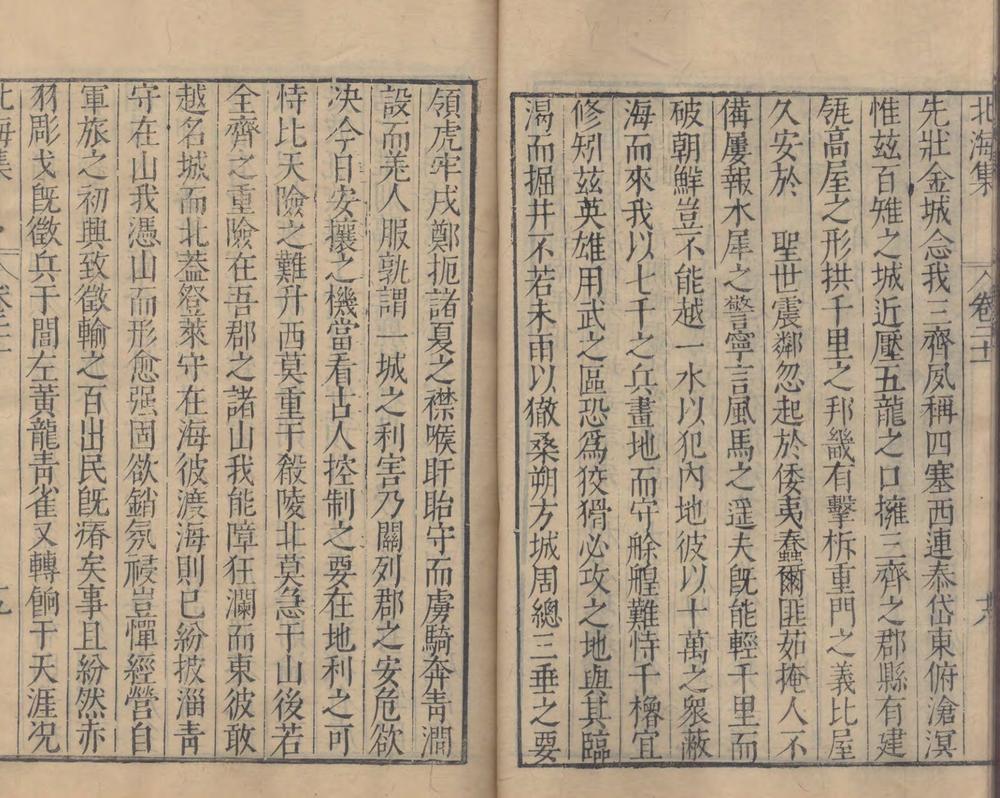 北海集 卷二十 十八
先壯金城念我三齊夙稱四塞西連泰岱東俯滄溟
惟茲百雉之城近壓五龍之口擁三齊之郡縣有建
瓴高屋之形拱千里之邦畿有擊柝重門之義比屋
久安於 聖世震鄰忽起於倭夷蠢爾匪茹掩人不
備屢報水犀之警寧言風馬之遥夫旣能輕千里而
破朝鮮豈不能越一水以犯內地彼以十萬之衆蔽
海而來我以七千之兵畫地而守艅艎難恃干櫓宜
修矧茲英雄用武之區恐爲狡猾必攻之地與其臨
渴而掘井不若未雨以徹桑朔方城周總三垂之要
領虎牢戍鄭扼諸夏之襟喉盱眙守而虜騎奔靑澗
設而羌人服孰謂一城之利害乃關列郡之安危欲
决今日安攘之機當看古人控制之要在地利之可
恃比天險之難升西莫重于殽陵北莫急于山後若
全齊之重險在吾郡之諸山我能障狂瀾而東彼敢
越名城而北葢登萊守在海彼渡海則已紛披淄靑
守在山我憑山而形愈强固欲銷氛祲豈憚經營自
軍旅之初興致徵輸之百出民旣瘠矣事且紛然赤
羽彫戈旣徵兵于閭左黃龍靑雀又轉餉于天涯况
北海集 卷二十 十九